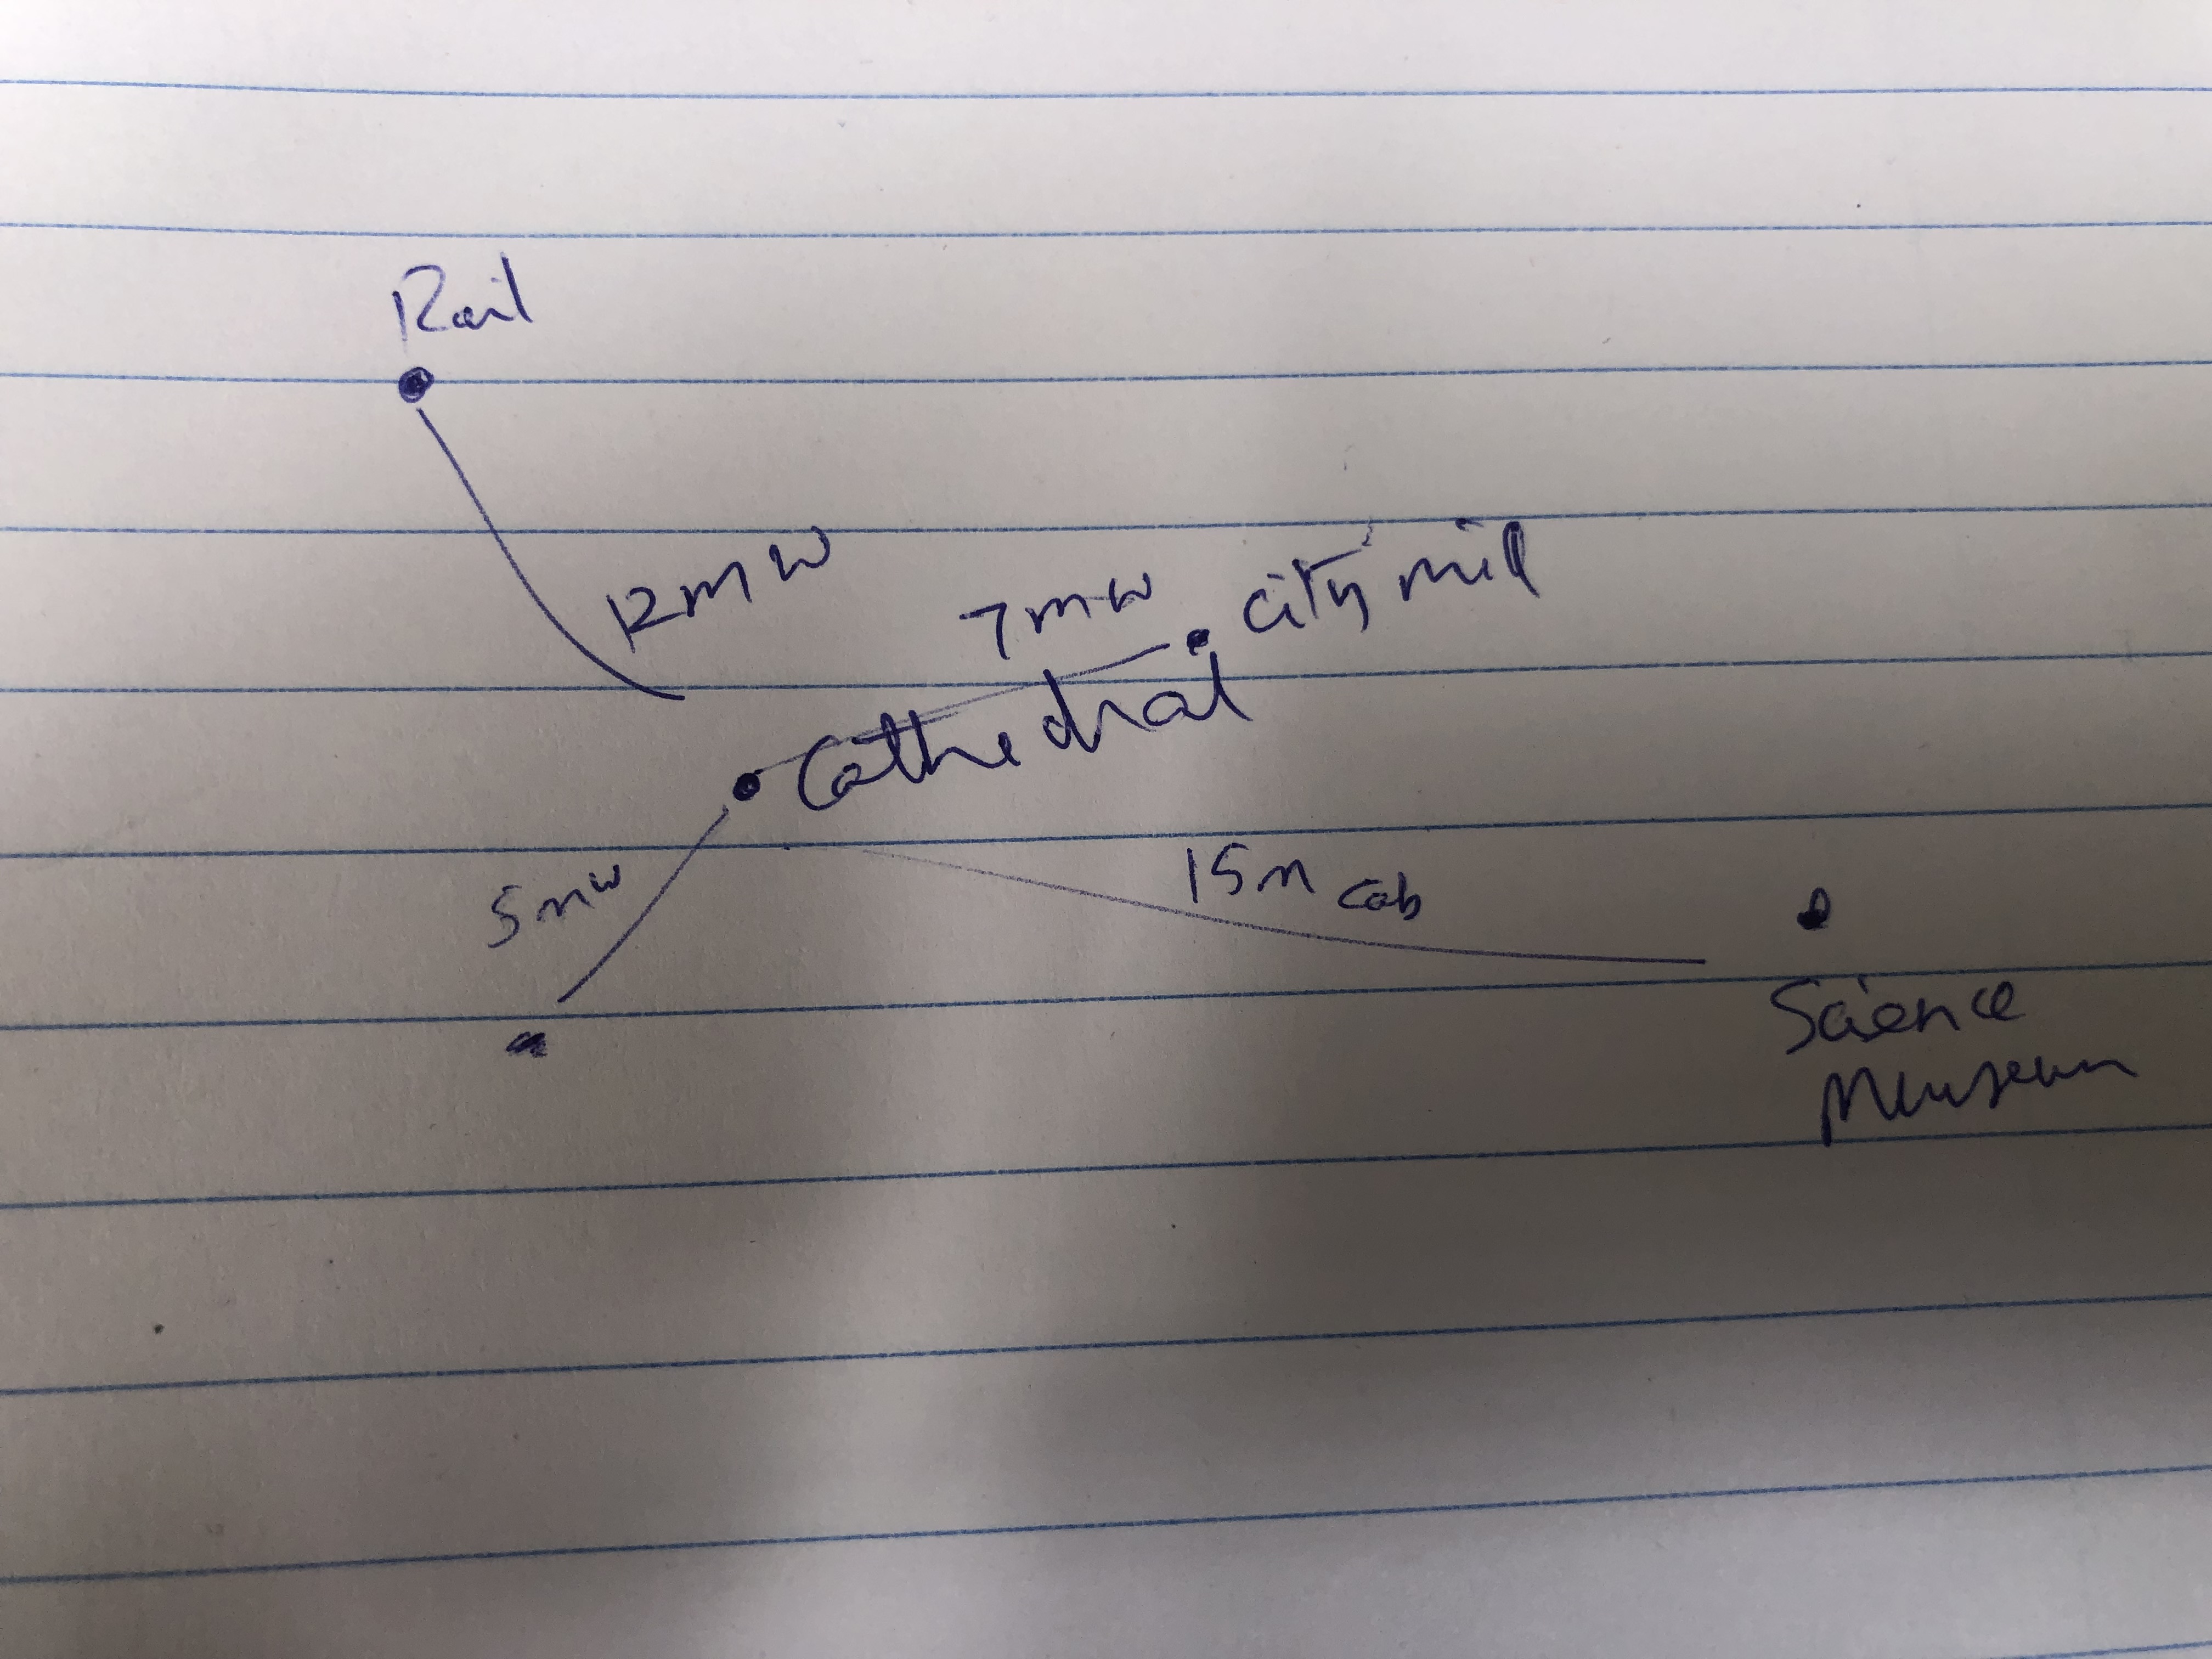 Rail
12 m w
7 m w
city mill
Cathedral
5 m w
15 m cab
Science
Museum